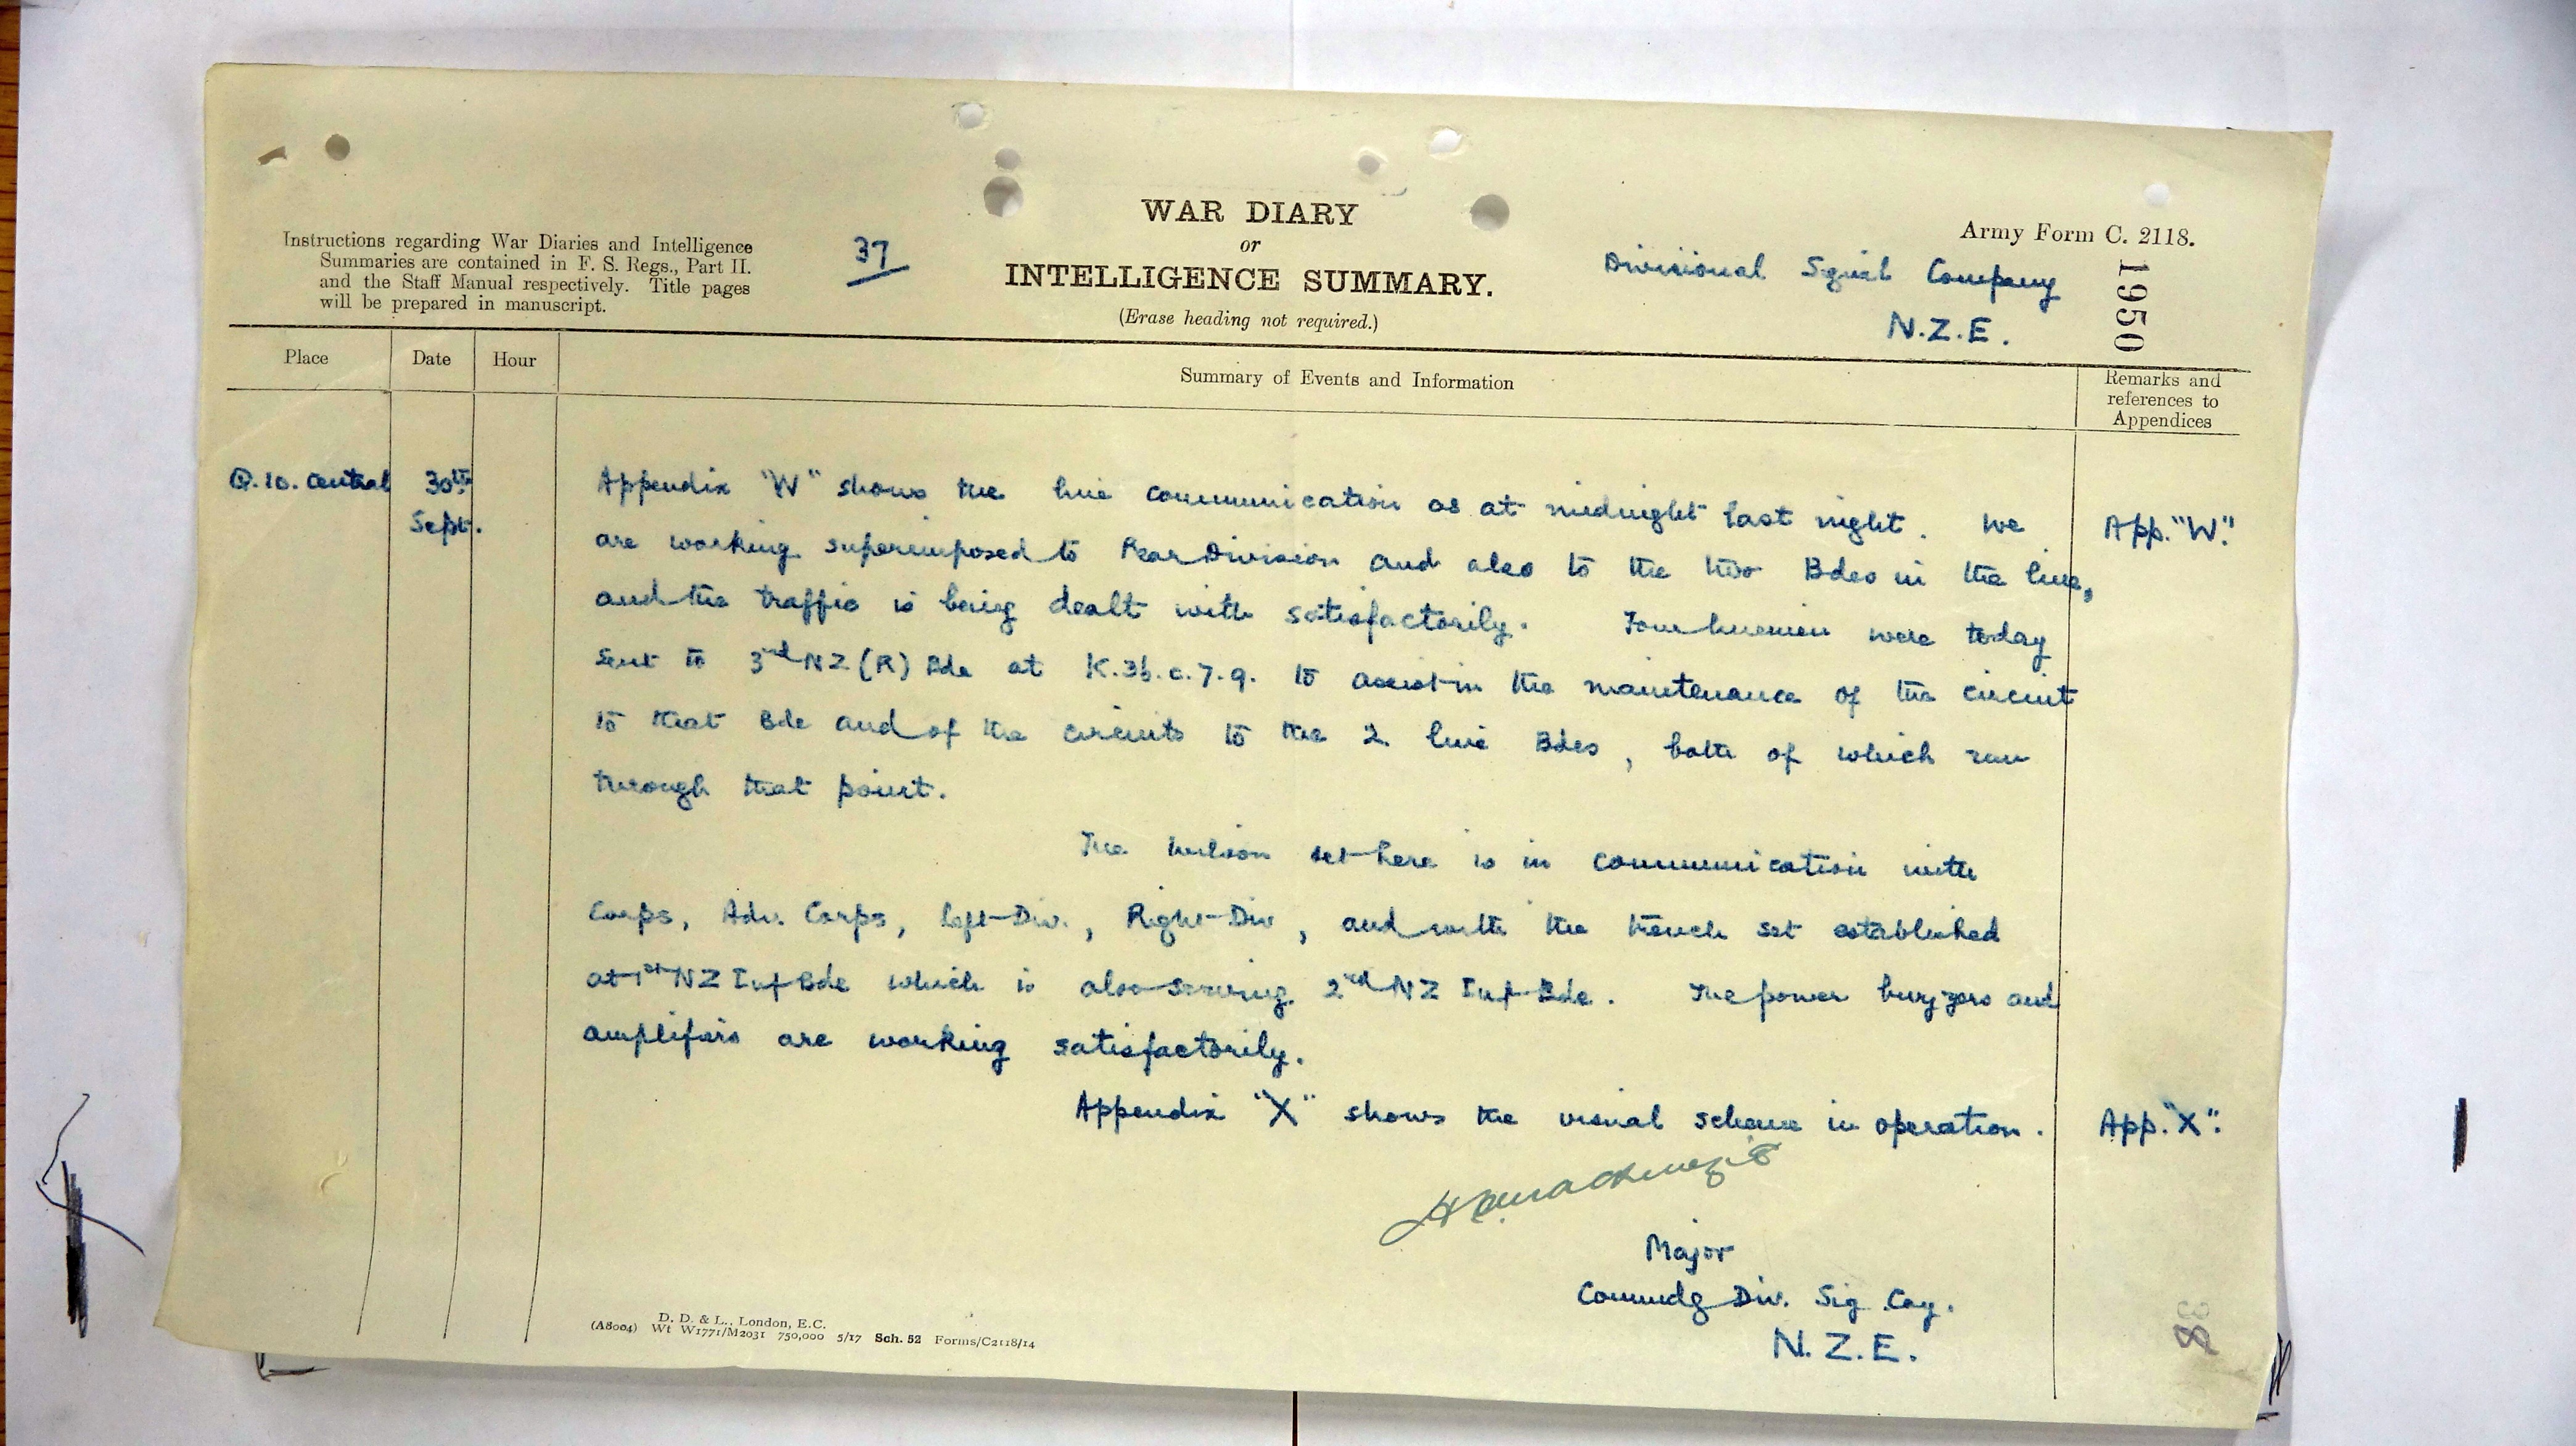 WAR DIARY
or
INTELLIGENCE SUMMARY.
(Erase heading not required.)
Army Form C. 2118.
Instructions regarding War Diaries and Intelligence
Summaries are contained in F. S. Regs., Part II.
and the Staff Manual respectively. Title pages
will be prepared in manuscript.
37
Divisional Signal Company
N.Z.E.
1950
Place Date Hour Summary of Events and Information Remarks and
references to
Appendices
Q.10. Central 30th
Sept.
Appendix "W" shows the line communication as at midnight last night. We
App. "W".
are working superimposed to Rear Division and also to the two Bdes in the line,
and the traffic is being dealt with satisfactorily. Four linemen were today
sent to 3rd NZ (R) Bde at K.36.c.7.9. to assist in the maintenance of the circuit
to that Bde and of the circuits to the 2 line Bdes, both of which run
through that point.
The Wilson set here is in communication with
Corps, Adv. Corps, Left Div., Right Div, and with the trench set established
at 1st NZ Inf Bde which is also serving 2nd NZ Inf Bde. The power buzzers and
amplifiers are working satisfactorily.
Appendix "X" shows the visual scheme in operation.
App. "X".
Major
Commdg Div. Sig. Coy.
N.Z.E.
D. D. & L., London, E.C.
(A8004) Wt W1771/M2031 750,000 5/17 Sch. 52 Forms/C2118/14